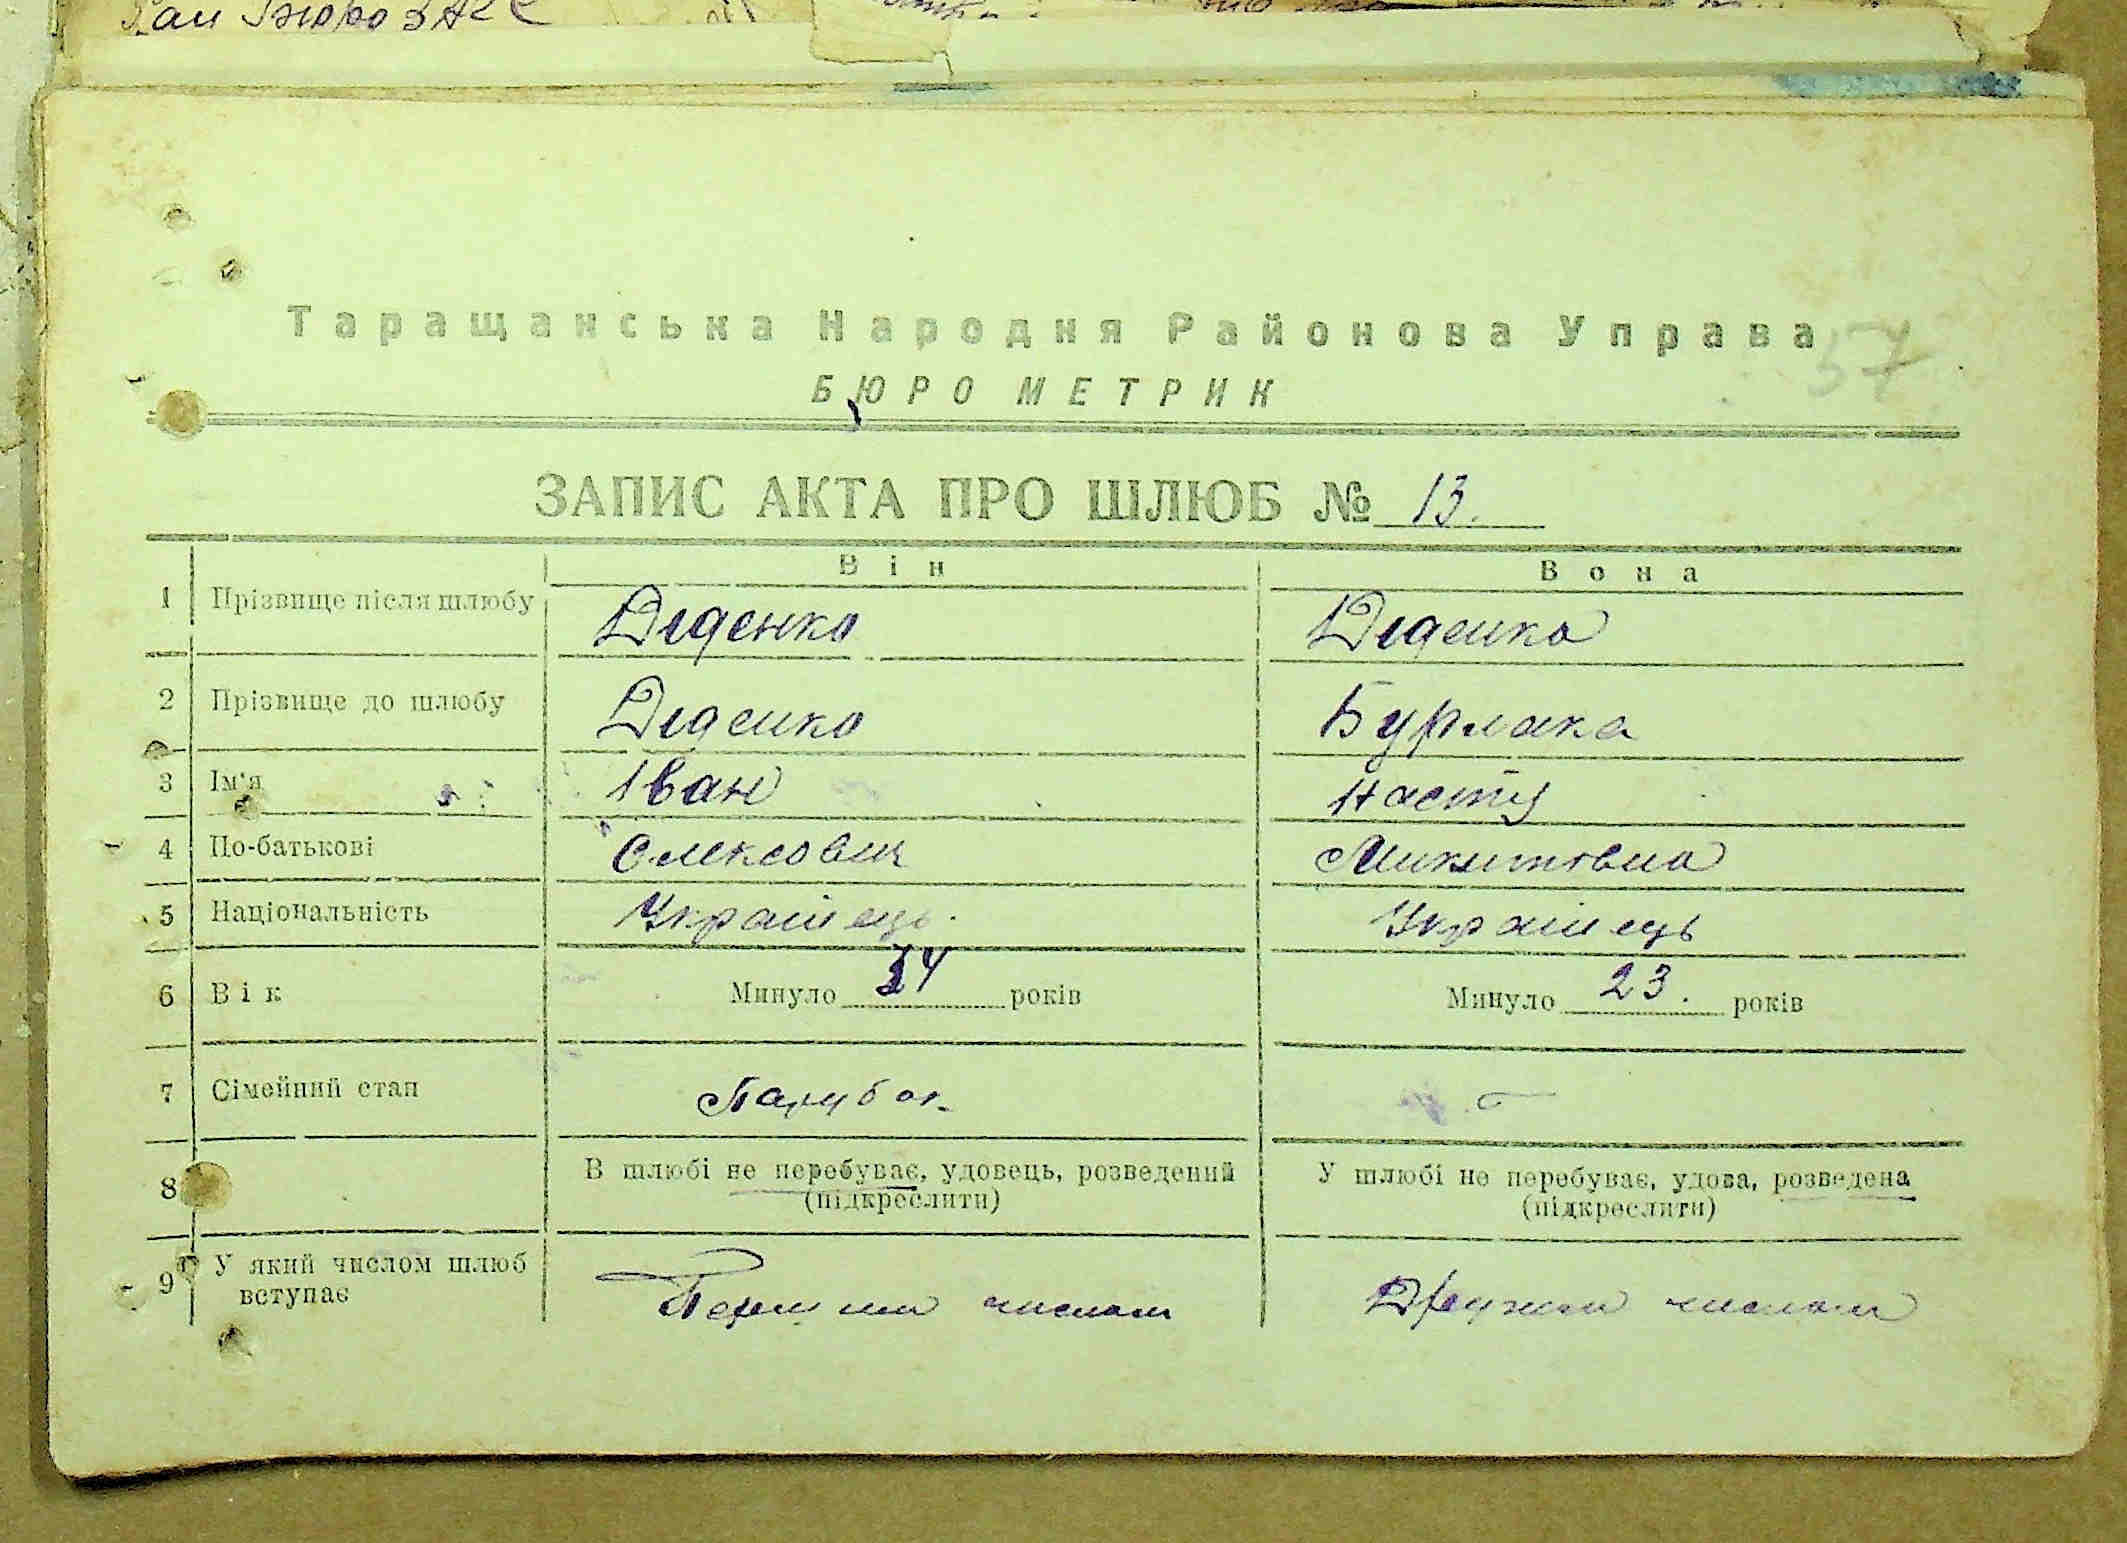 Рай Бюро ЗАГС
Таращанська Народня Районова Управа
57
БЮРО МЕТРИК
ЗАПИС АКТА ПРО ШЛЮБ № 13.
Він Вона
1 Прізвище після шлюбу Діденко Діденко
2 Прізвище до шлюбу Діденко Бурлака
3 Ім'я Іван Настя
4 По-батькові Олексович Микитовна
5 Національність Украінець. Украінець
6 Вік Минуло 24 років Минуло 23. років
7 Сімейний стан Парубок –
8 В шлюбі не перебуває, удовець, розведений У шлюбі не перебуває, удова, розведена
(підкреслити) (підкреслити)
9 У який числом шлюб
вступає Першим числом Другим числом